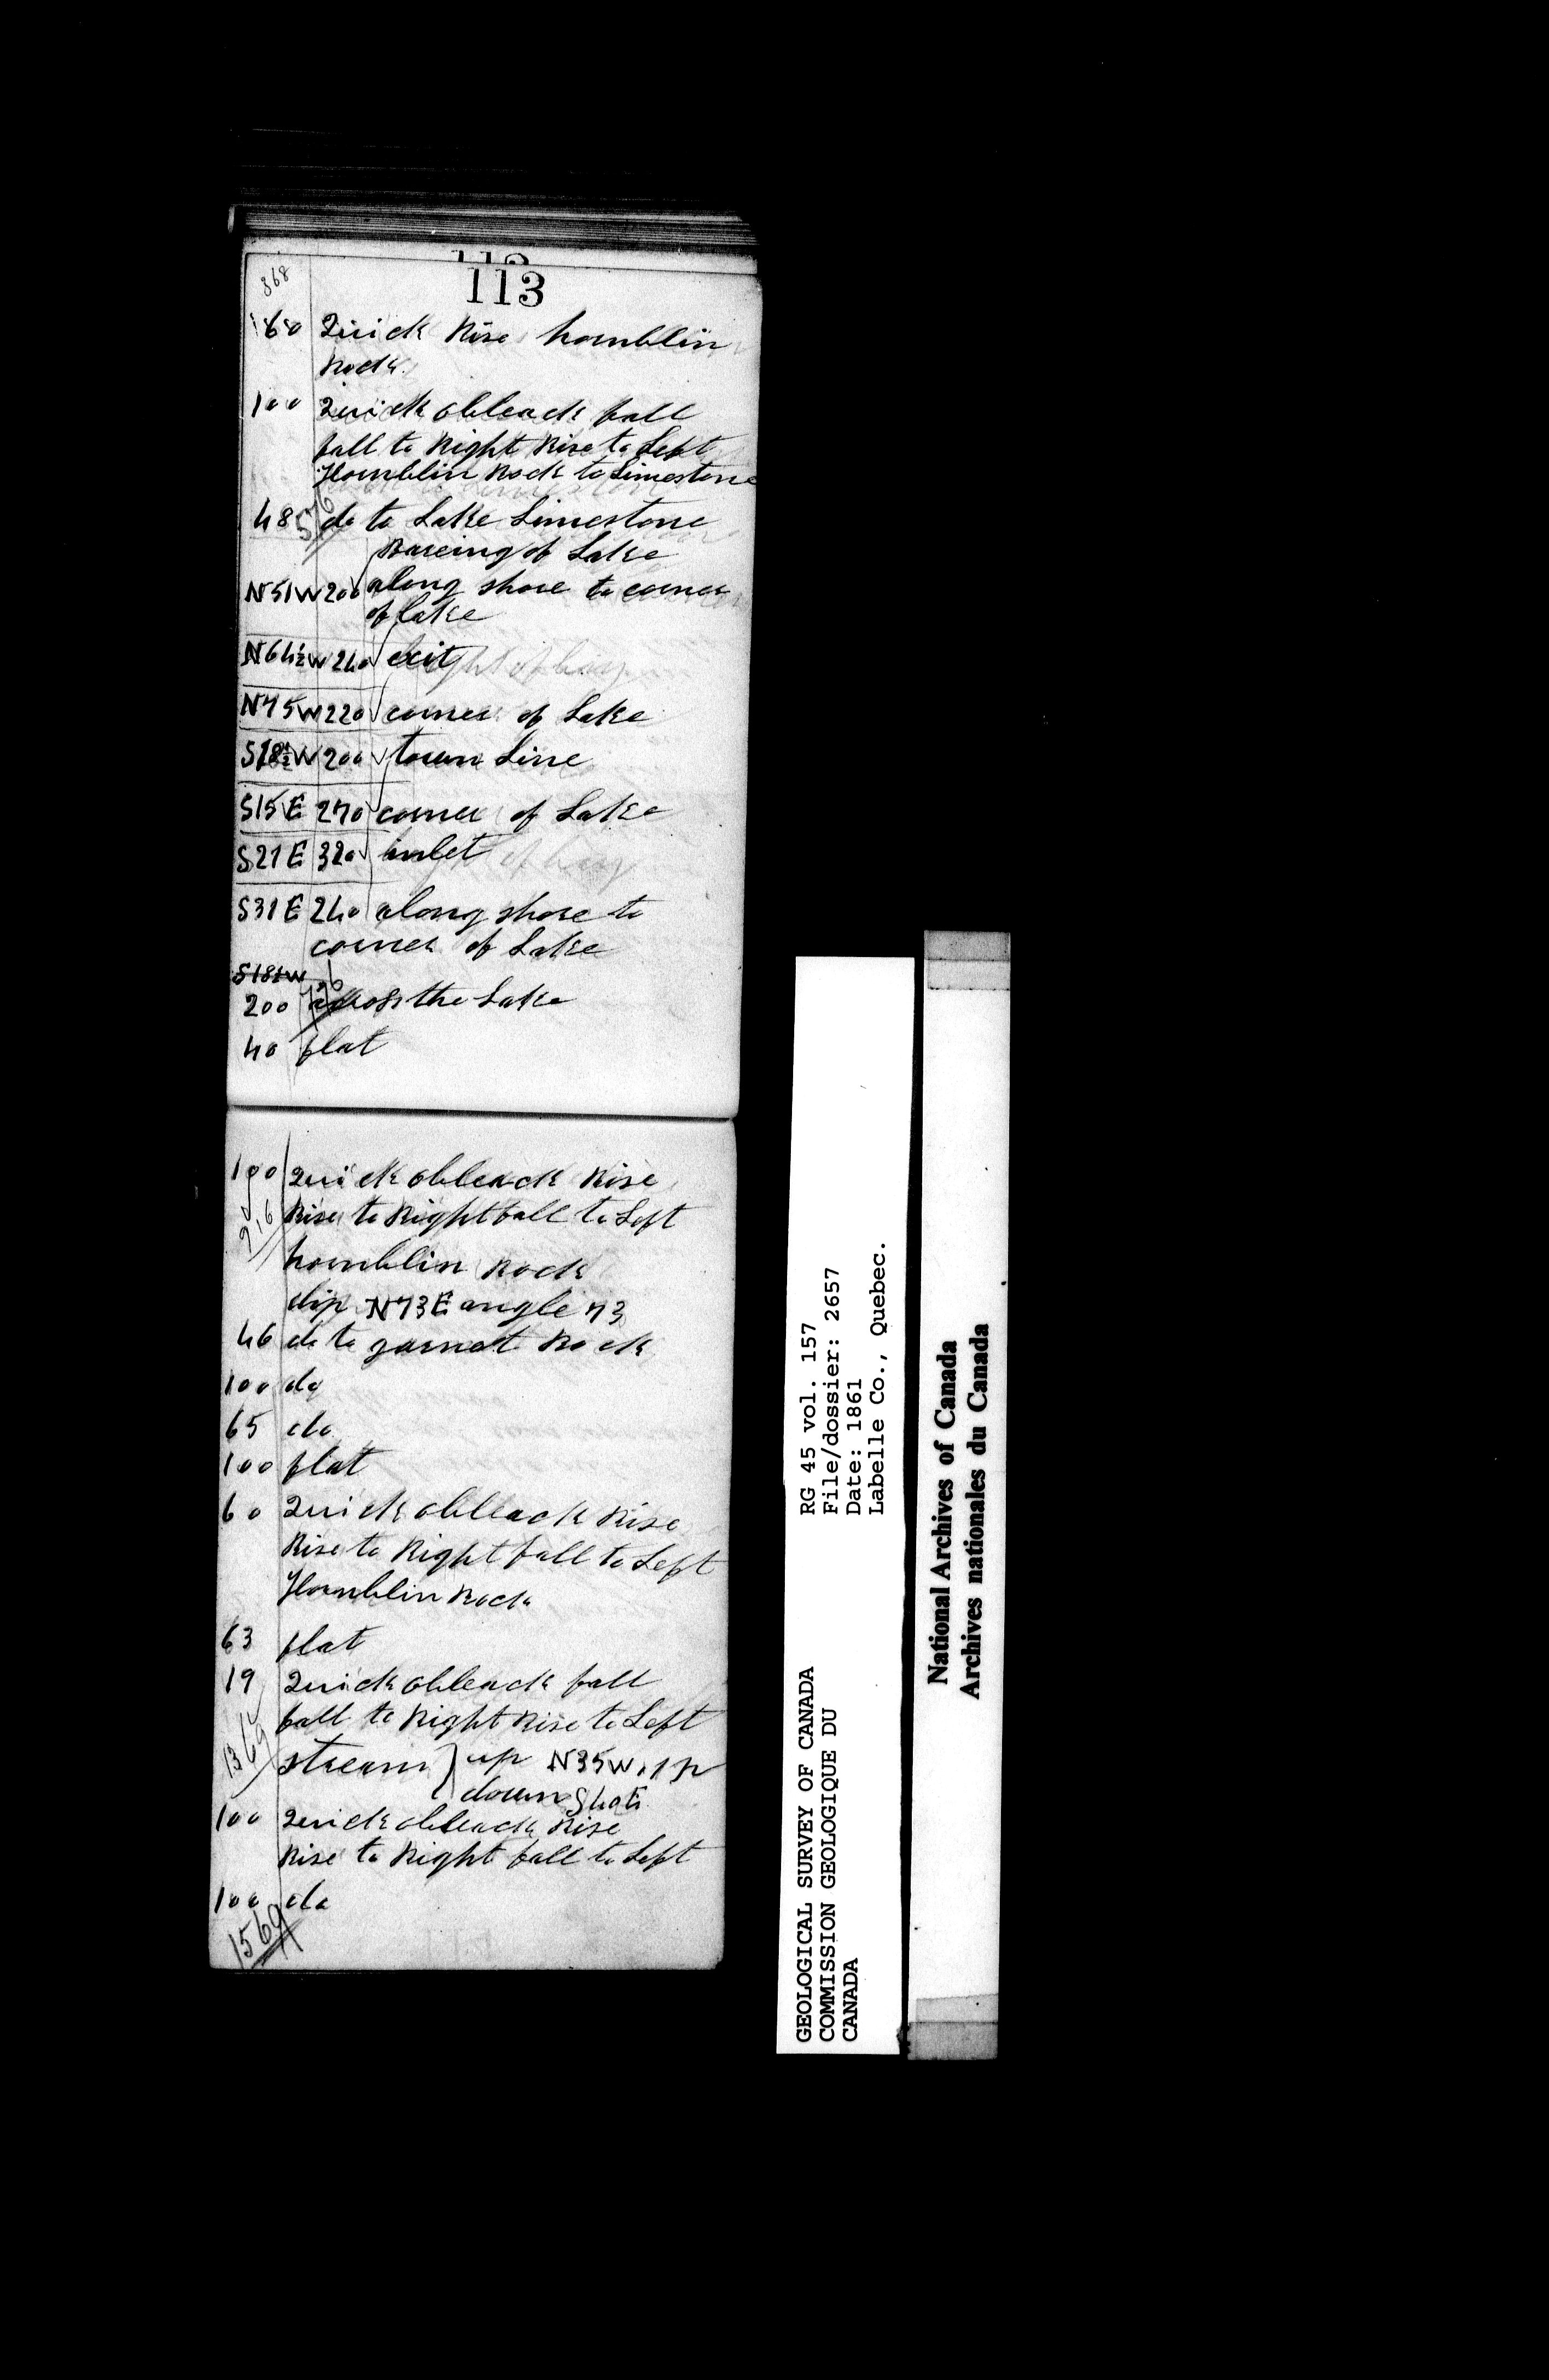 113
368
60 Quick Rise homblin
Rock
100 Quick obleack fall
fall to Right Rise to Left
Homblin Rock to Limestone
48 576 do to Lake Limestone
Bareing of Lake
N51W 200 along shore to corner
of lake
N64½W 240 exit
N75W 220 corner of Lake
S18½W 200 town Line
S15E 270 corner of Lake
S21E 320 inlet
S31E 240 along shore to
corner of Lake
S18½W
200 776 across the Lake
40 flat
100 Quick obleack Rise
916 Rise to Right fall to Left
homblin Rock
dip N73E angle 73
46 do to garnat Rock
100 do
65 do
100 flat
60 Quick obleack Rise
Rise to Right fall to Left
Homblin Rock
63 flat
19 Quick obleack fall
fall to Right Rise to Left
1369 stream } up N35W
down S40E
100 Quick obleack Rise
Rise to Right fall to Left
100 do
1569
GEOLOGICAL SURVEY OF CANADA
COMMISSION GEOLOGIQUE DU
CANADA
RG 45 vol. 157
File/dossier: 2657
Date: 1861
Labelle Co., Quebec.
National Archives of Canada
Archives nationales du Canada